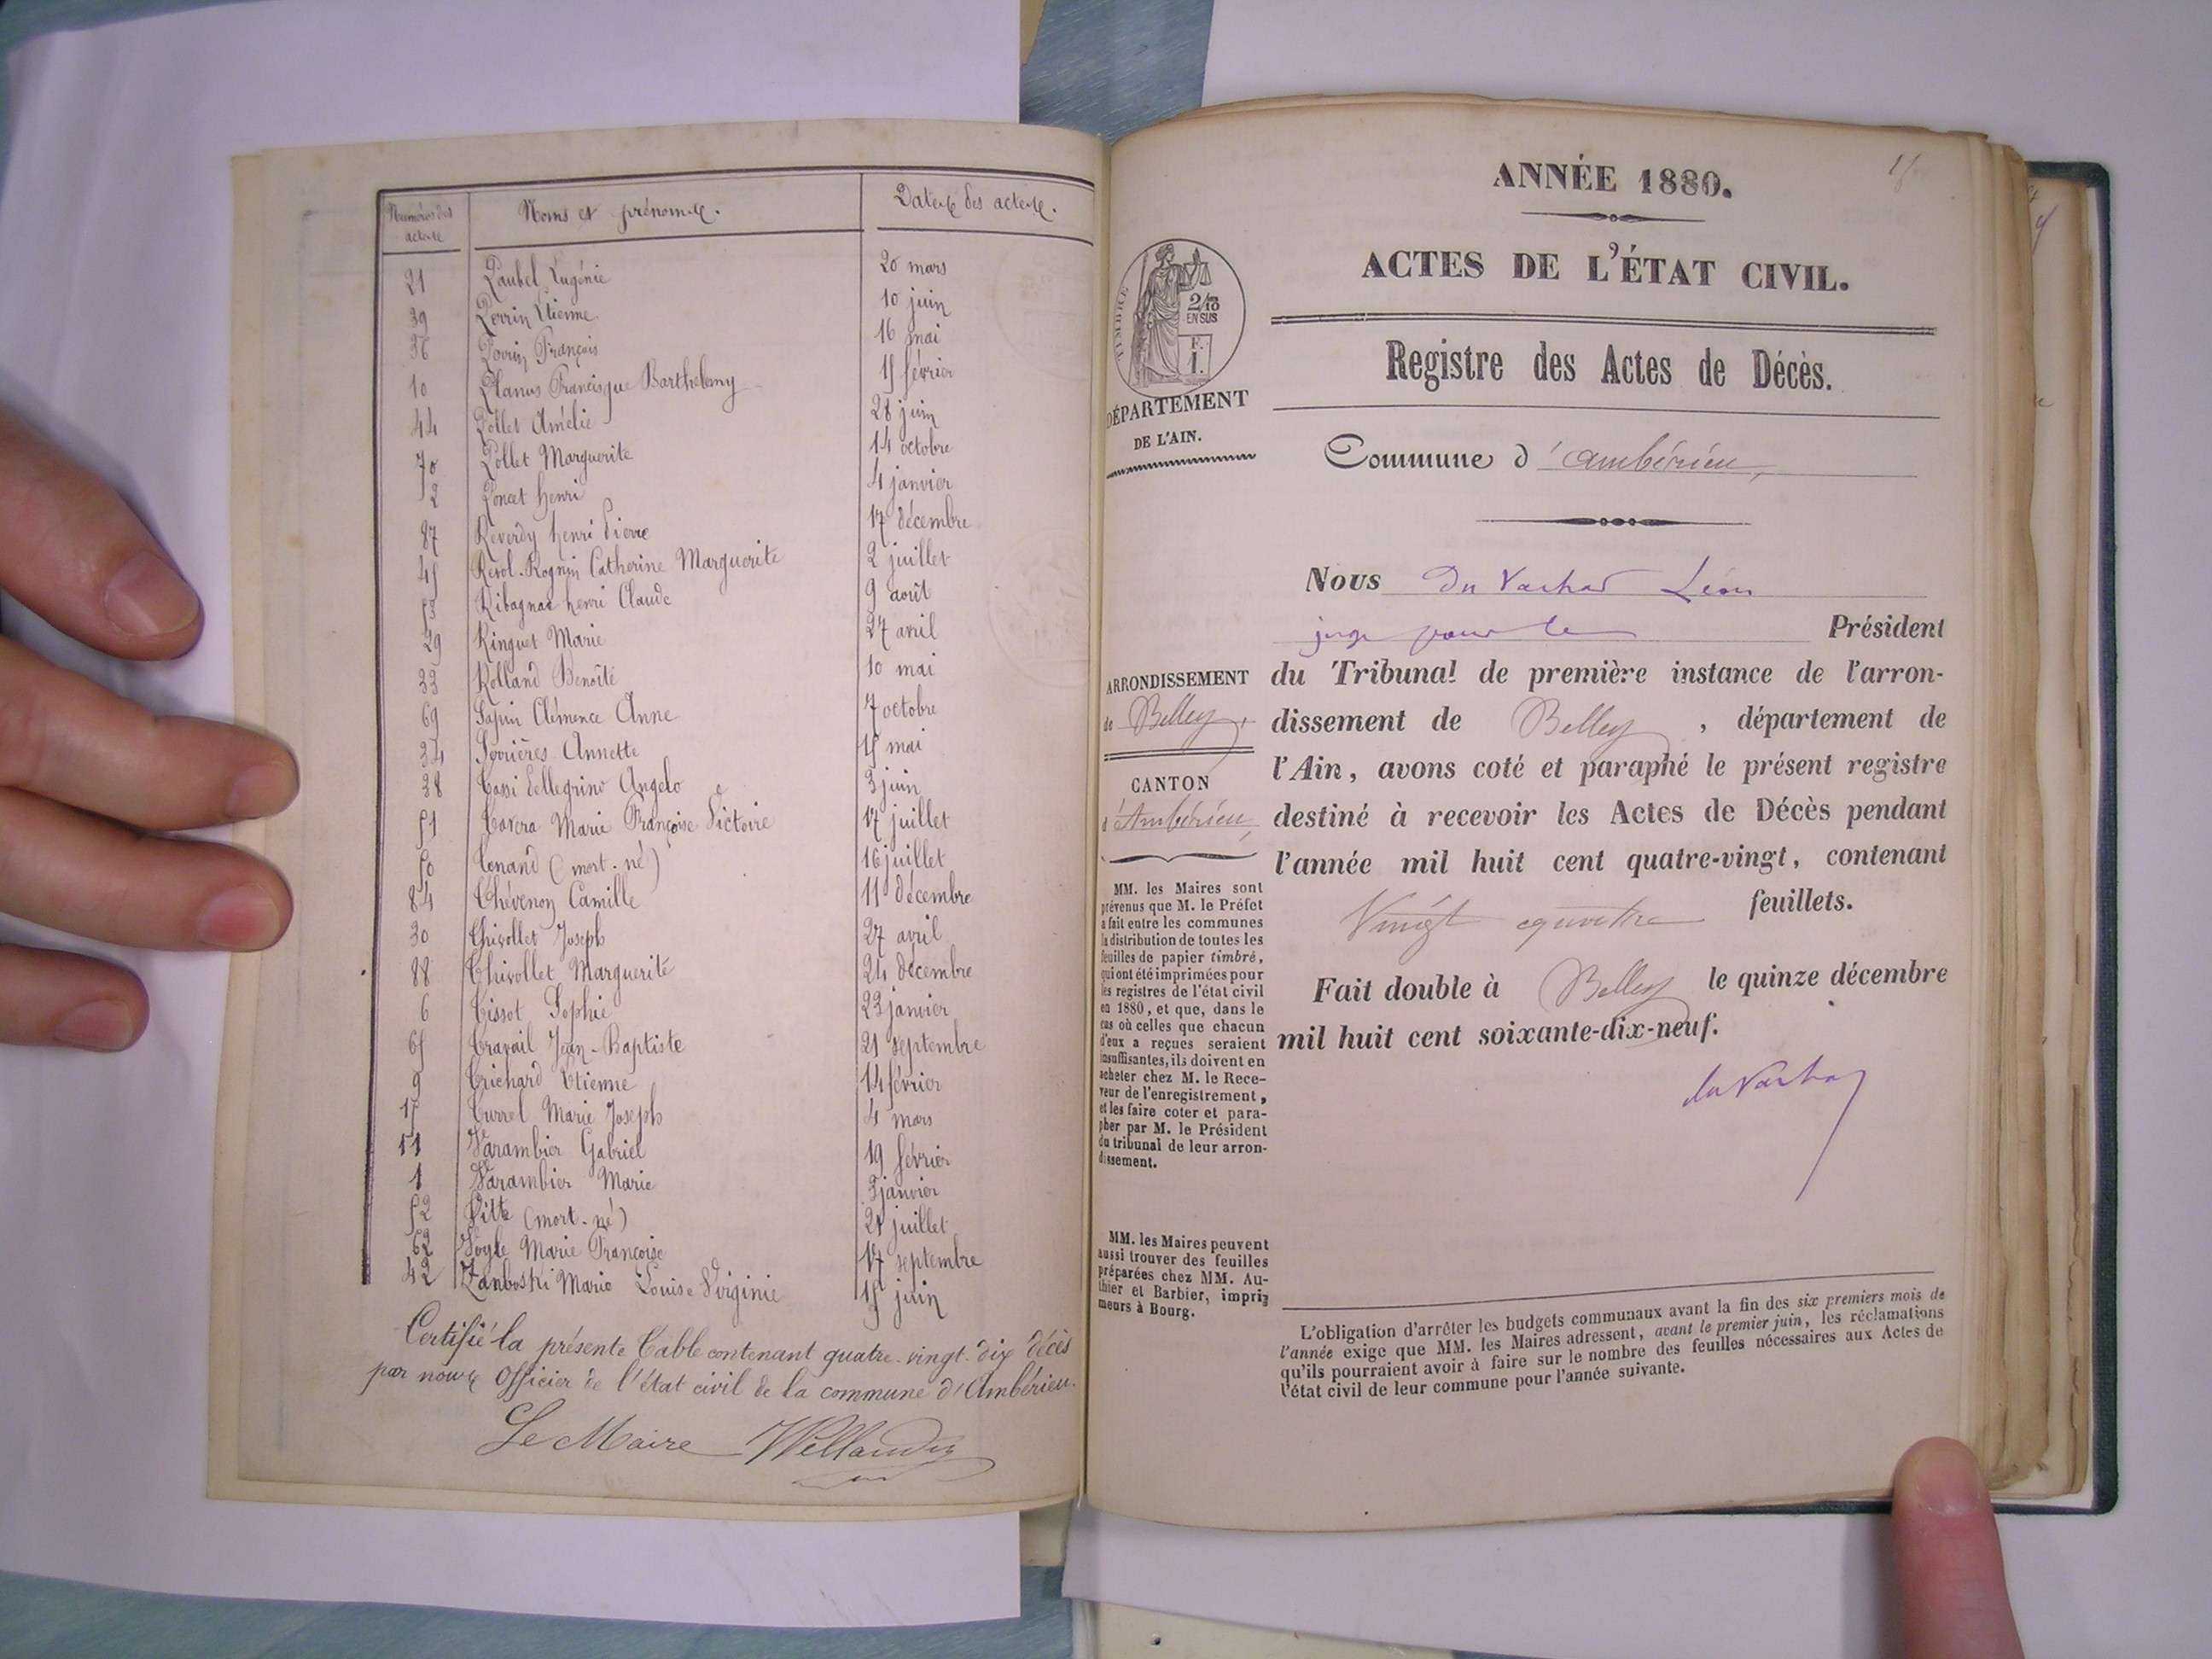 Numéros des actes
Noms et prénoms.
Dates des actes.
21 Paubel Eugénie 20 mars
39 Perrin Etienne 10 juin
36 Perrin François 16 mai
10 Planus Francisque Barthelemy 15 février
44 Pollet Amélie 28 juin
70 Pollet Marguerite 14 octobre
2 Poncet henri 4 janvier
87 Reverdy henri Pierre 17 décembre
45 Revol-Rognin Catherine Marguerite 2 juillet
53 henri Claude 9 août
29 Ringuet Marie 27 avril
33 Rolland Benoîte 10 mai
69 Sapin Clémence Anne 7 octobre
34 Serrières Annette 15 mai
38 Tassi Pellegrino Angelo 3 juin
51 Tavera Marie Françoise Victoire 17 juillet
50 Tenand (mort-né) 16 juillet
84 Thévenon Camille 11 décembre
30 Thivollet Joseph 27 avril
88 Thivollet Marguerite 24 décembre
6 Tissot Sophie 23 janvier
65 Travail Jean-Baptiste 21 septembre
9 Trichard Etienne 14 février
15 Turrel Marie Joseph 4 mars
11 Varambier Gabriel 19 février
1 Varambier Marie 3 janvier
52 Vitte (mort-né) 21 juillet
62 Voyle Marie Françoise 17 septembre
42 Zanboski Marie Louise Virginie 15 juin
Certifié la présente Table contenant quatre-vingt-dix décès
par nous Officier de l'état civil de la commune d'Ambérieu.
Le Maire
ANNÉE 1880.
ACTES DE L'ÉTAT CIVIL.
Registre des Actes de Décès.
TIMBRE
2/10
EN SUS
F.
1.
DÉPARTEMENT
DE L'AIN.
Commune d'Ambérieu,
Nous Du Vachat Léon
juge pour le Président
du Tribunal de première instance de l'arron-
dissement de Belley, département de
l'Ain, avons coté et paraphé le présent registre
destiné à recevoir les Actes de Décès pendant
l'année mil huit cent quatre-vingt, contenant
Vingt quatre feuillets.
Fait double à Belley le quinze décembre
mil huit cent soixante-dix-neuf.
du Vachat
ARRONDISSEMENT
de Belley,
CANTON
d'Ambérieu,
MM. les Maires sont
prévenus que M. le Préfet
a fait entre les communes
la distribution de toutes les
feuilles de papier timbré,
qui ont été imprimées pour
les registres de l'état civil
en 1880, et que, dans le
cas où celles que chacun
d'eux a reçues seraient
insuffisantes, ils doivent en
acheter chez M. le Rece-
veur de l'enregistrement,
et les faire coter et para-
pher par M. le Président
du tribunal de leur arron-
dissement.
MM. les Maires peuvent
aussi trouver des feuilles
préparées chez MM. Au-
thier et Barbier, impri-
meurs à Bourg.
L'obligation d'arrêter les budgets communaux avant la fin des six premiers mois de
l'année exige que MM. les Maires adressent, avant le premier juin, les réclamations
qu'ils pourraient avoir à faire sur le nombre des feuilles nécessaires aux Actes de
l'état civil de leur commune pour l'année suivante.